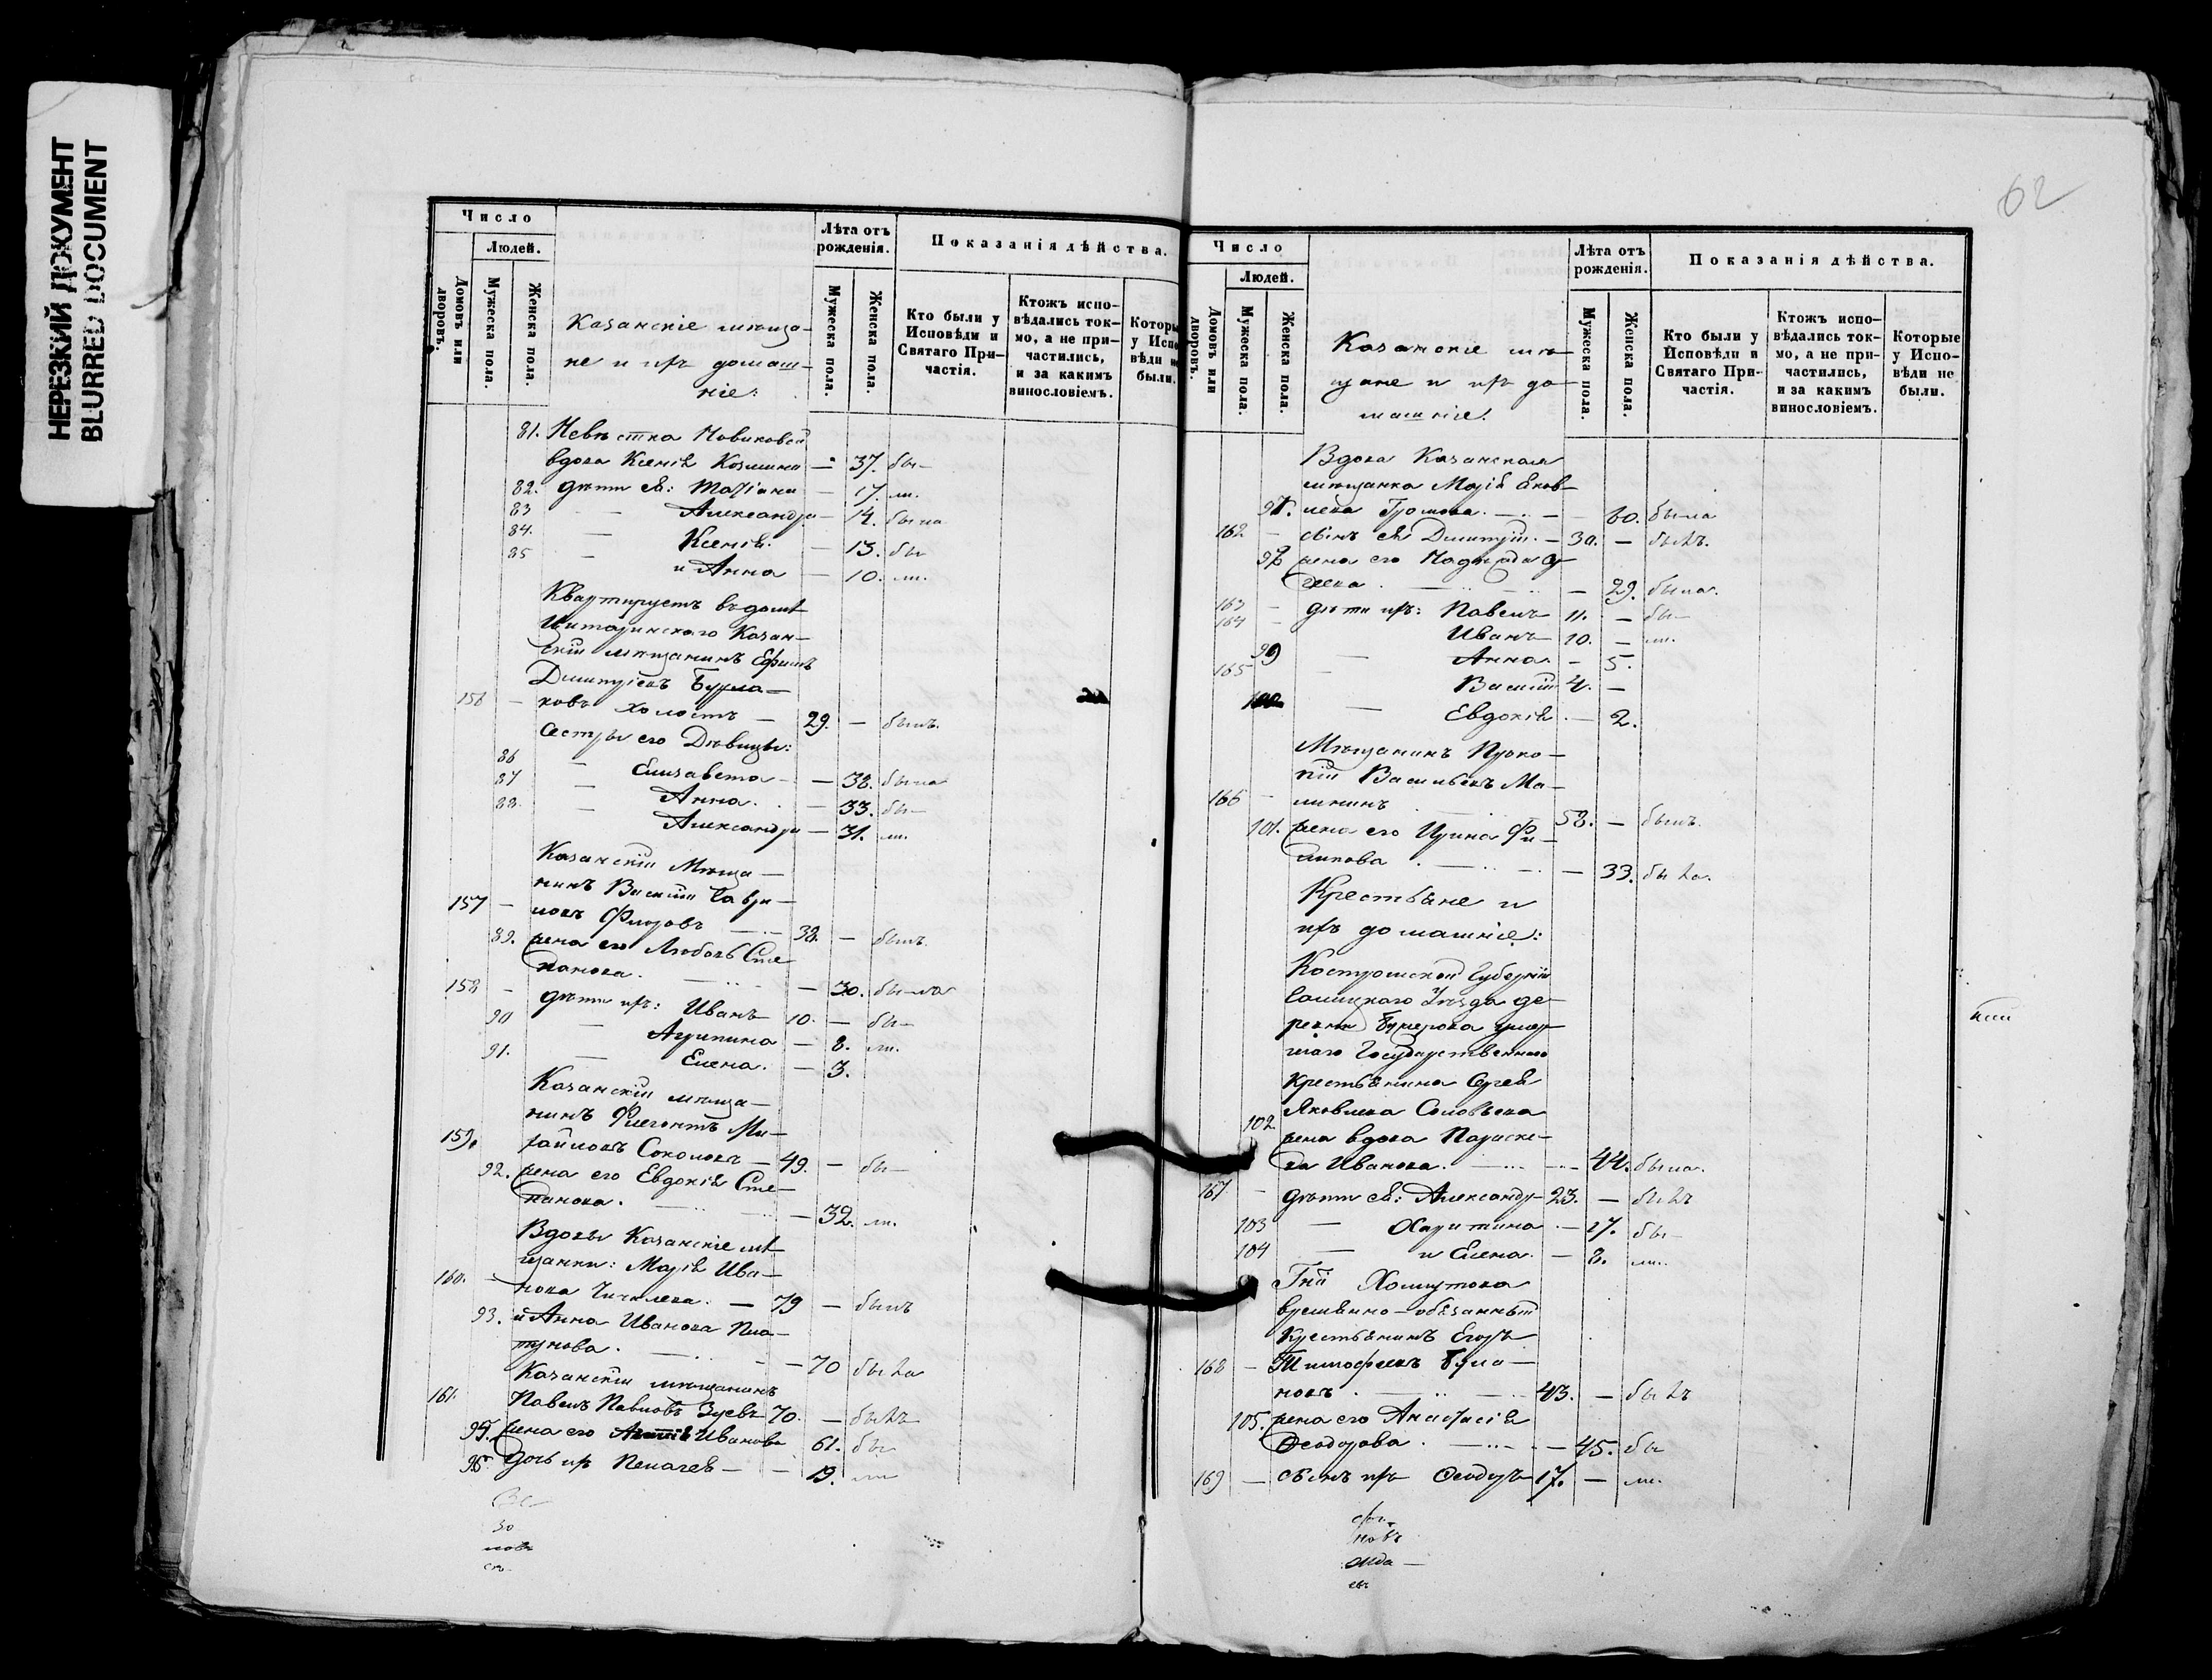 НЕРЕЗКИЙ ДОКУМЕНТ
BLURRED DOCUMENT
Число
Людей.
Домовъ или дворовъ.
Мужеска пола.
Женска пола.
Казанскiе мѣща-
не и ихъ домаш-
нiе:
Лѣта отъ рожденiя.
Мужеска пола.
Женска пола.
Показанiя дѣйства.
Кто были у Исповѣди и Святаго При-частiя.
Ктожъ испо-вѣдались ток-мо, а не при-частились, и за какимъ винословiемъ.
Которы у Испо вѣди не были.
81. Невѣстка Новиковой
вдова Ксенiя Козмина — 37. бы-
82. дѣти ея: Татiана — 17. ли.
83 — Александра — 14. была
84. — Ксенiя. — 13. бы
85 — и Анна — 10. ли.
Квартируетъ въ домѣ
Казан-
скiй мѣщанинъ Ефимъ
Димитрiевъ Бурла-
156 — ковъ холостъ — 29. — былъ.
Сестры его Дѣвицы:
86 — Елизавета — 38. была
87 — Анна. — 33. бы-
88. — Александра — 31. ли.
Казанскiй Мѣща-
нинъ Василiй Гаври-
157 — ловъ Фроловъ — 38. — былъ.
89. жена его Любовь Сте
панова. — 30. была
158 — дѣти ихъ: Иванъ 10. — бы-
90 — Агрипина — 8. ли.
91. — Елена. — 3.
Казанскiй мѣща-
нинъ Флегонтъ Ми-
159. хайловъ Соколовъ — 49. — бы-
92. жена его Евдокiя Сте-
панова. — 32. ли.
Вдовы Казанскiе мѣ
щанки: Марiя Ива-
160. — нова — 79 — былъ
93. и Анна Ивановa Пла-
тунова. — 70 была
Казанскiй мѣщанинъ
161. Павелъ Павловъ Зуевъ 70. — былъ
94. жена его Ивановa 61. бы
95. дочь ихъ Пелагея — 19. ли
Зо
ловъ
62
Число
Людей.
Домовъ или дворовъ.
Мужеска пола.
Женска пола.
Казанскiе мѣ-
щане и ихъ до-
машнiе.
Лѣта отъ рожденiя.
Мужеска пола.
Женска пола.
Показанiя дѣйства.
Кто были у Исповѣди и Святаго При-частiя.
Ктожъ испо-вѣдались ток-мо, а не при-частились, и за какимъ винословiемъ.
Которые у Испо-вѣди не были.
Вдова Казанская
мѣщанка Марiя Яков-
97. лева Громова. — 60. была
162 — сынъ ея Димитрiй. — 30. — былъ.
98 жена его Надежда Сер
геева. — 29. была.
163 — дѣти ихъ: Павелъ 11. — бы-
164 — Иванъ 10. — ли.
99 — Анна. — 5.
165 Василiй 4. —
100 — Евдокiя. — 2.
Мѣщанинъ Проко-
пiй Васильевъ Ма-
166 — лининъ 58. — былъ.
101. жена его Ирина Фи-
липова. — 33. была.
Крестьяне и
ихъ домашнiе:
Костромской Губернiи
Галицкаго Уѣзда де-
ревни умер-
шаго Государственнаго
крестьянина Сергея
Яковлева Соловьева
102 жена вдова Параске-
ва Иванова. — 44. была.
167. — дѣти ея: Александръ 23. — былъ
103 — Харитина — 17. бы-
104 — и Елена. — 8. ли.
Гжи Хомутова
временно-обязанный
крестьянинъ Егоръ
168 — Тимофеевъ Була-
новъ. — 43. — былъ
105. жена его Анастасiя
Ѳеодорова. — 45. бы
169 — сынъ ихъ Ѳеодоръ 17. — ли.
новъ